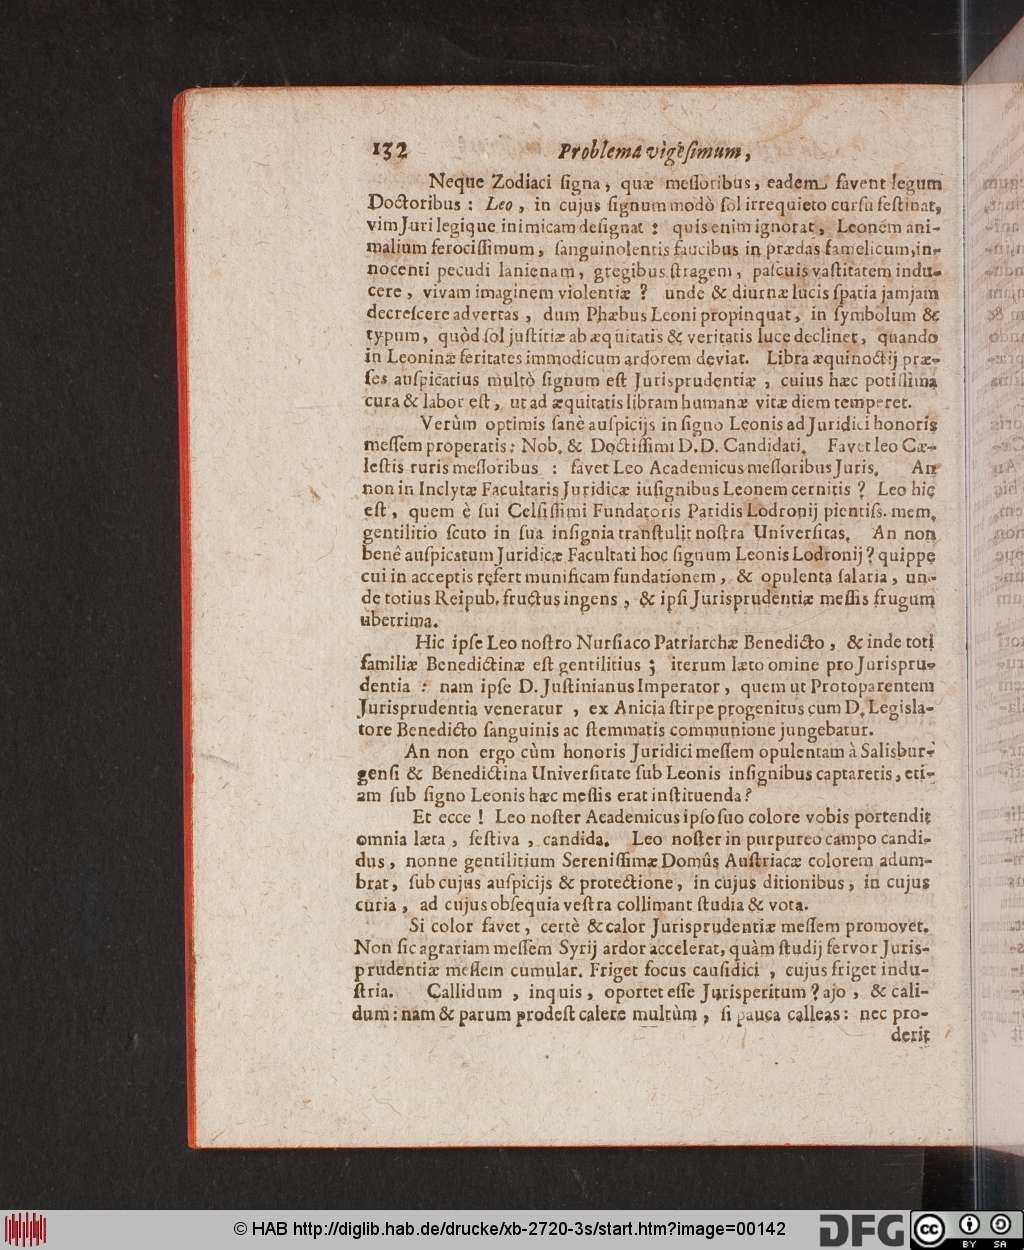 132 Problema vigesimum,
Neque Zodiaci ſigna, quæ meſſoribus, eadem favent legum
Doctoribus : Leo, in cujus ſignum modò ſol irrequieto curſu feſtinat,
vim Juri legique inimicam deſignat : quis enim ignorat, Leonem ani-
malium ferociſſimum, ſanguinolentis faucibus in prædas famelicum, in-
nocenti pecudi lanienam, gregibus ſtragem, paſcuis vaſtitatem indu-
cere, vivam imaginem violentiæ ? unde & diurnæ lucis ſpatia jamjam
decreſcere advertas, dum Phæbus Leoni propinquat, in ſymbolum &
typum, quòd ſol juſtitiæ ab æquitatis & veritatis luce declinet, quando
in Leoninæ feritates immodicum ardorem deviat. Libra æquinoctij præ-
ſes auſpicatius multò ſignum eſt Jurisprudentiæ, cuius hæc potiſſima
cura & labor eſt, ut ad æquitatis libram humanæ vitæ diem temperet.
Verùm optimis ſanè auſpicijs in ſigno Leonis ad Juridici honoris
meſſem properatis : Nob. & Doctiſſimi D.D. Candidati. Favet leo Cæ-
leſtis ruris meſſoribus : favet Leo Academicus meſſoribus Juris. An
non in Inclytæ Facultatis Juridicæ iuſignibus Leonem cernitis ? Leo hic
eſt, quem è ſui Celſiſſimi Fundatoris Paridis Lodronij pientiſs. mem.
gentilitio ſcuto in ſua inſignia tranſtulit noſtra Univerſitas. An non
benè auſpicatum Juridicæ Facultati hoc ſignum Leonis Lodronij ? quippe
cui in acceptis refert munificam fundationem, & opulenta ſalaria, un-
de totius Reipub. fructus ingens, & ipſi Jurisprudentiæ meſſis frugum
uberrima.
Hic ipſe Leo noſtro Nurſiaco Patriarchæ Benedicto, & inde toti
familiæ Benedictinæ eſt gentilitius ; iterum læto omine pro Jurispru-
dentia : nam ipſe D. Juſtinianus Imperator, quem ut Protoparentem
Jurisprudentia veneratur, ex Anicia ſtirpe progenitus cum D. Legisla-
tore Benedicto ſanguinis ac ſtemmatis communione jungebatur.
An non ergo cùm honoris Juridici meſſem opulentam à Salisbur-
genſi & Benedictina Univerſitate ſub Leonis inſignibus captaretis, eti-
am ſub ſigno Leonis hæc meſſis erat inſtituenda ?
Et ecce ! Leo noſter Academicus ipſo ſuo colore vobis portendit
omnia læta, feſtiva, candida. Leo noſter in purpureo campo candi-
dus, nonne gentilitium Sereniſſimæ Domûs Auſtriacæ colorem adum-
brat, ſub cujus auſpicijs & protectione, in cujus ditionibus, in cujus
curia, ad cujus obſequia veſtra collimant ſtudia & vota.
Si color favet, certè & calor Jurisprudentiæ meſſem promovet.
Non ſic agrariam meſſem Syrij ardor accelerat, quàm ſtudij fervor Juris-
prudentiæ meſſem cumulat. Friget focus cauſidici, cujus friget indu-
ſtria. Callidum, inquis, oportet eſſe Jurisperitum ? ajo, & cali-
dum : nam & parum prodeſt calere multùm, ſi pauca calleas : nec pro-
derit
© HAB http://diglib.hab.de/drucke/xb-2720-3s/start.htm?image=00142
DFG
cc BY SA